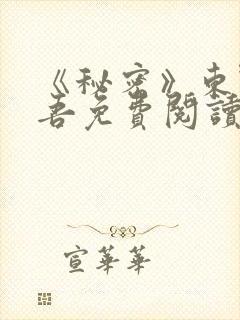 《秘密》東
吾免費閱讀
宣華華